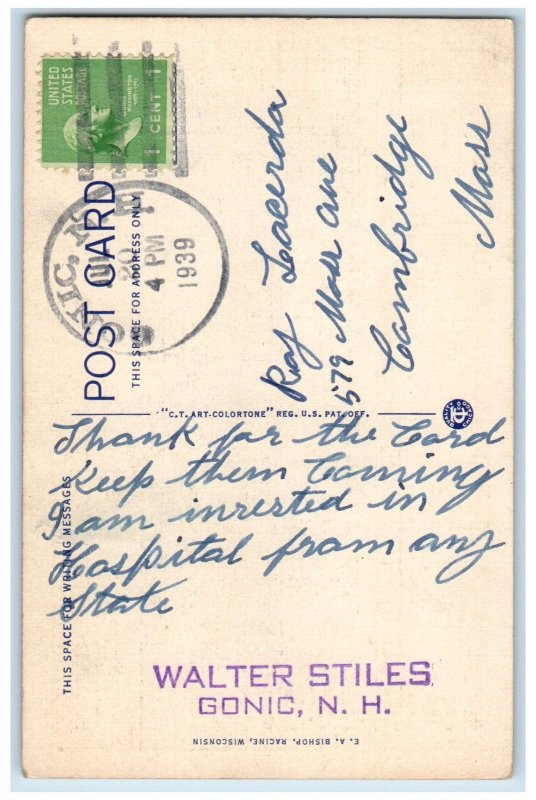 UNITED STATES
POSTAGE
1 CENT 1
GONIC, N.
20
4 PM
1939
POST CARD
THIS SPACE FOR ADDRESS ONLY
Ray Lacerda
579 Mass ave
Cambridge
Mass
"C.T. ART-COLORTONE" REG. U.S. PAT. OFF.
THIS SPACE FOR WRITING MESSAGES
Thank for the Card
Keep them Coming
I am inrested in
Hospital from any
State
WALTER STILES
GONIC, N. H.
E. A. BISHOP, RACINE, WISCONSIN